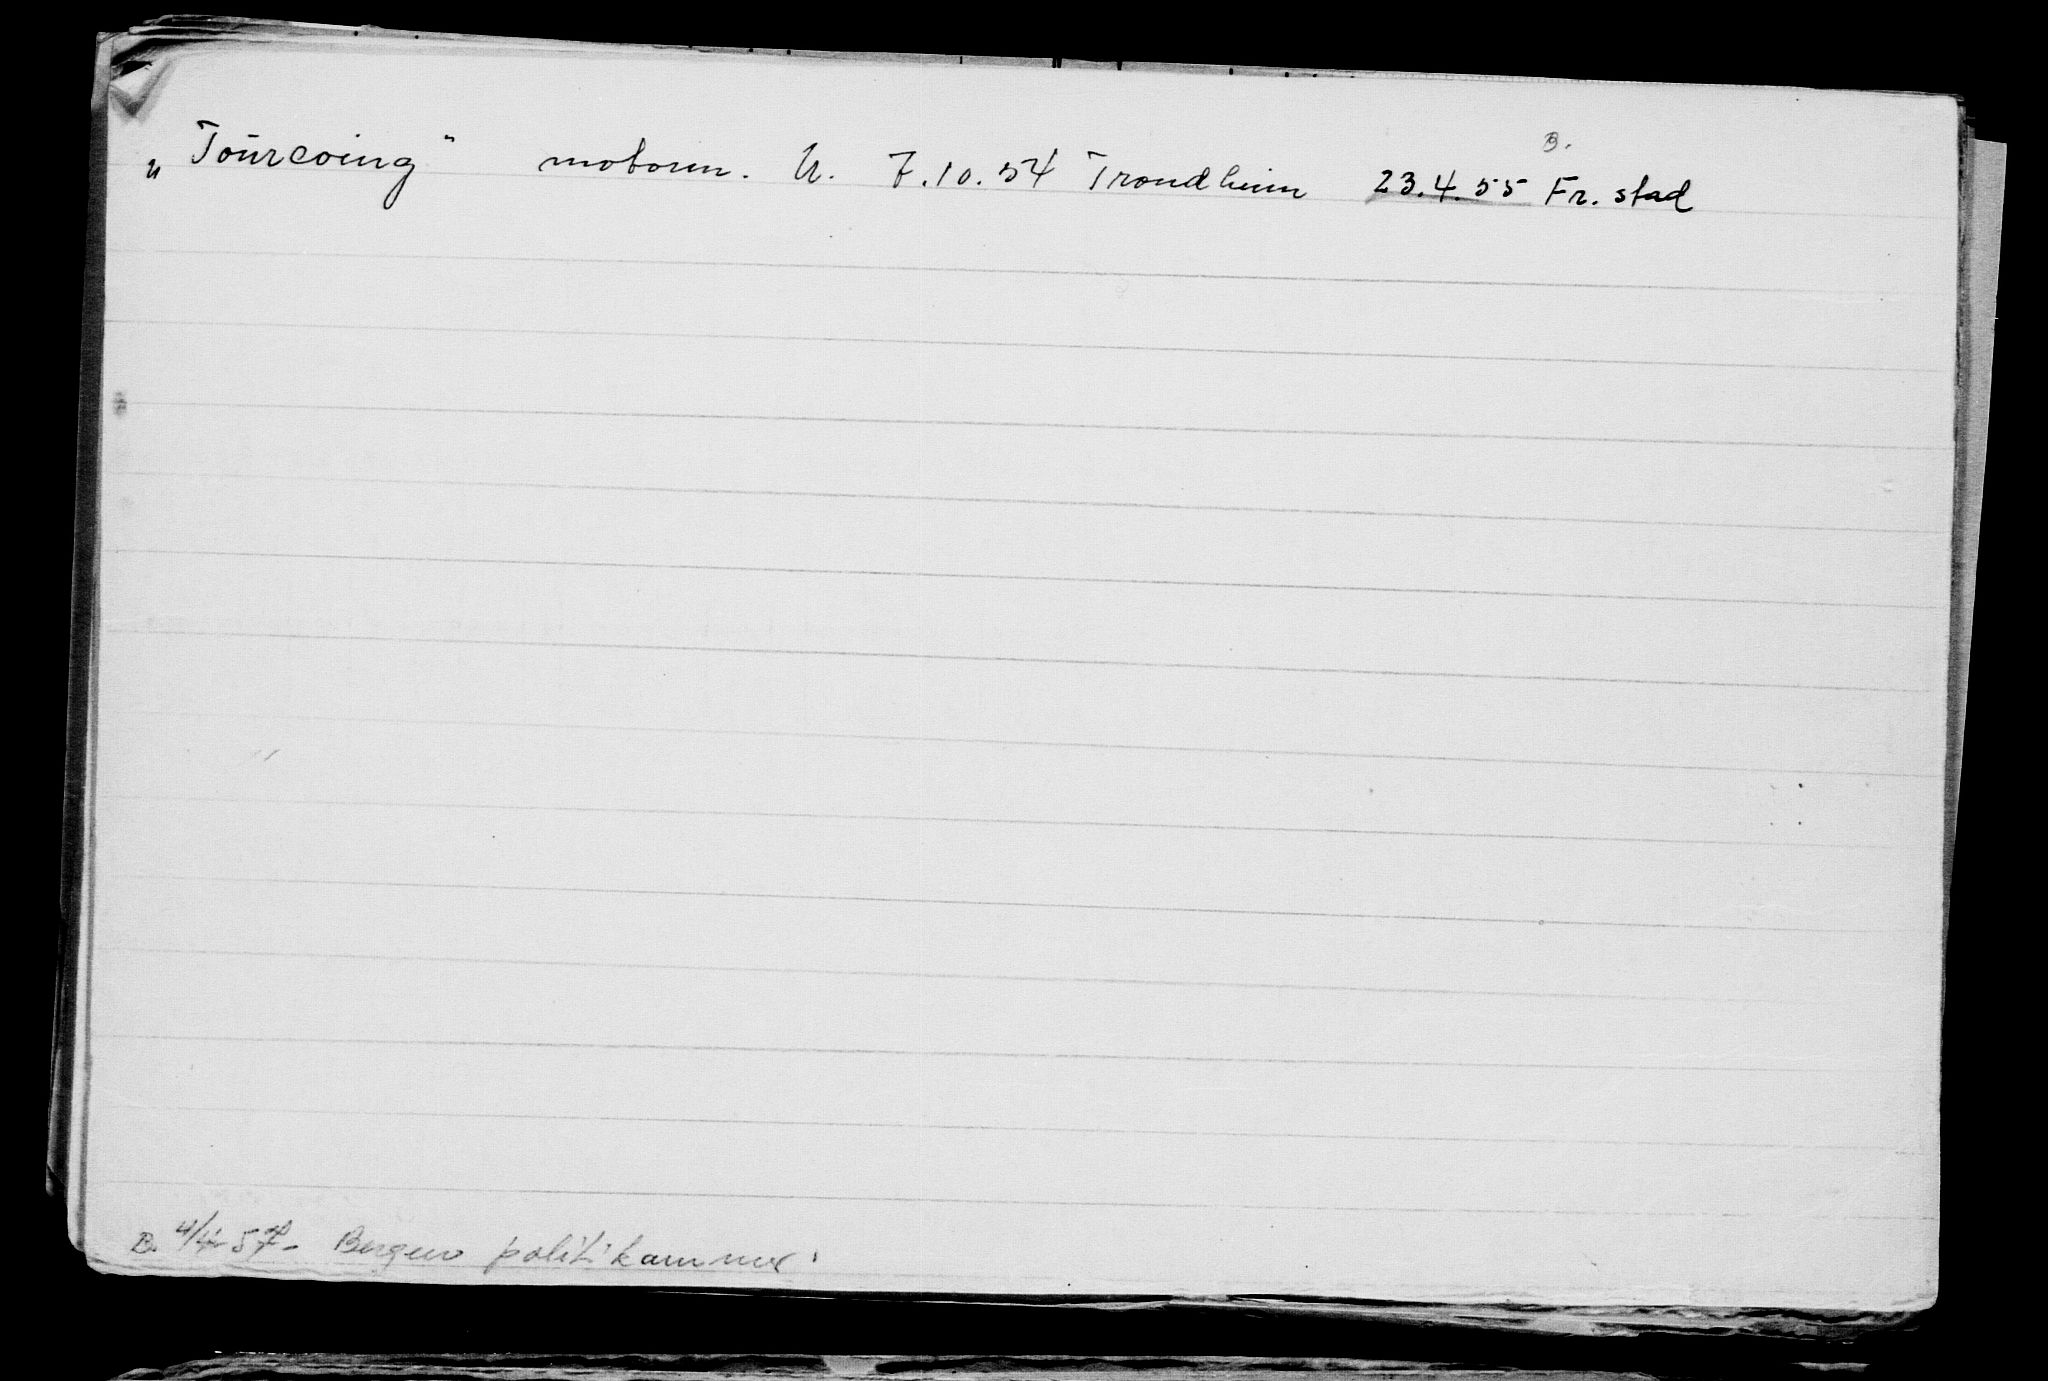 B.
„Tourcoing" motorm. U. 7.10.54 Trondheim 23.4.55 Fr. stad
B. 4/4-57- Bergen politikammer.